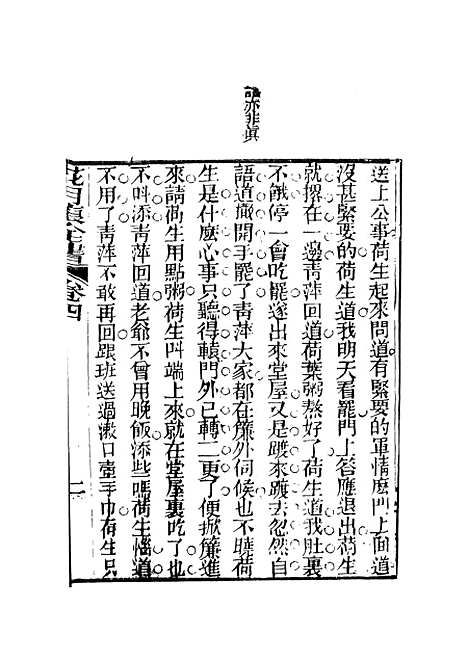 語亦非眞
送上公事荷生起來問道有緊要的軍情麽門上面道
沒甚緊要的荷生道我明天看罷門上答應退出荷生
就撂在一邊靑萍回道荷葉粥熬好了荷生道我肚裏
不餓停一會吃罷遂出來堂屋又是踱來踱去忽然自
語道撒開手罷了靑萍大家都在簾外伺候也不曉荷
生是什麽心事只聽得轅門外已轉二更了便掀簾進
來請荷生用點粥荷生叫端上來就在堂屋裏吃了也
不呌添靑萍回道老爺不曾用晚飯添些嗎荷生惱道
不用了靑萍不敢再回跟班送過漱口壺手巾荷生只
花月痕全書 卷四 二